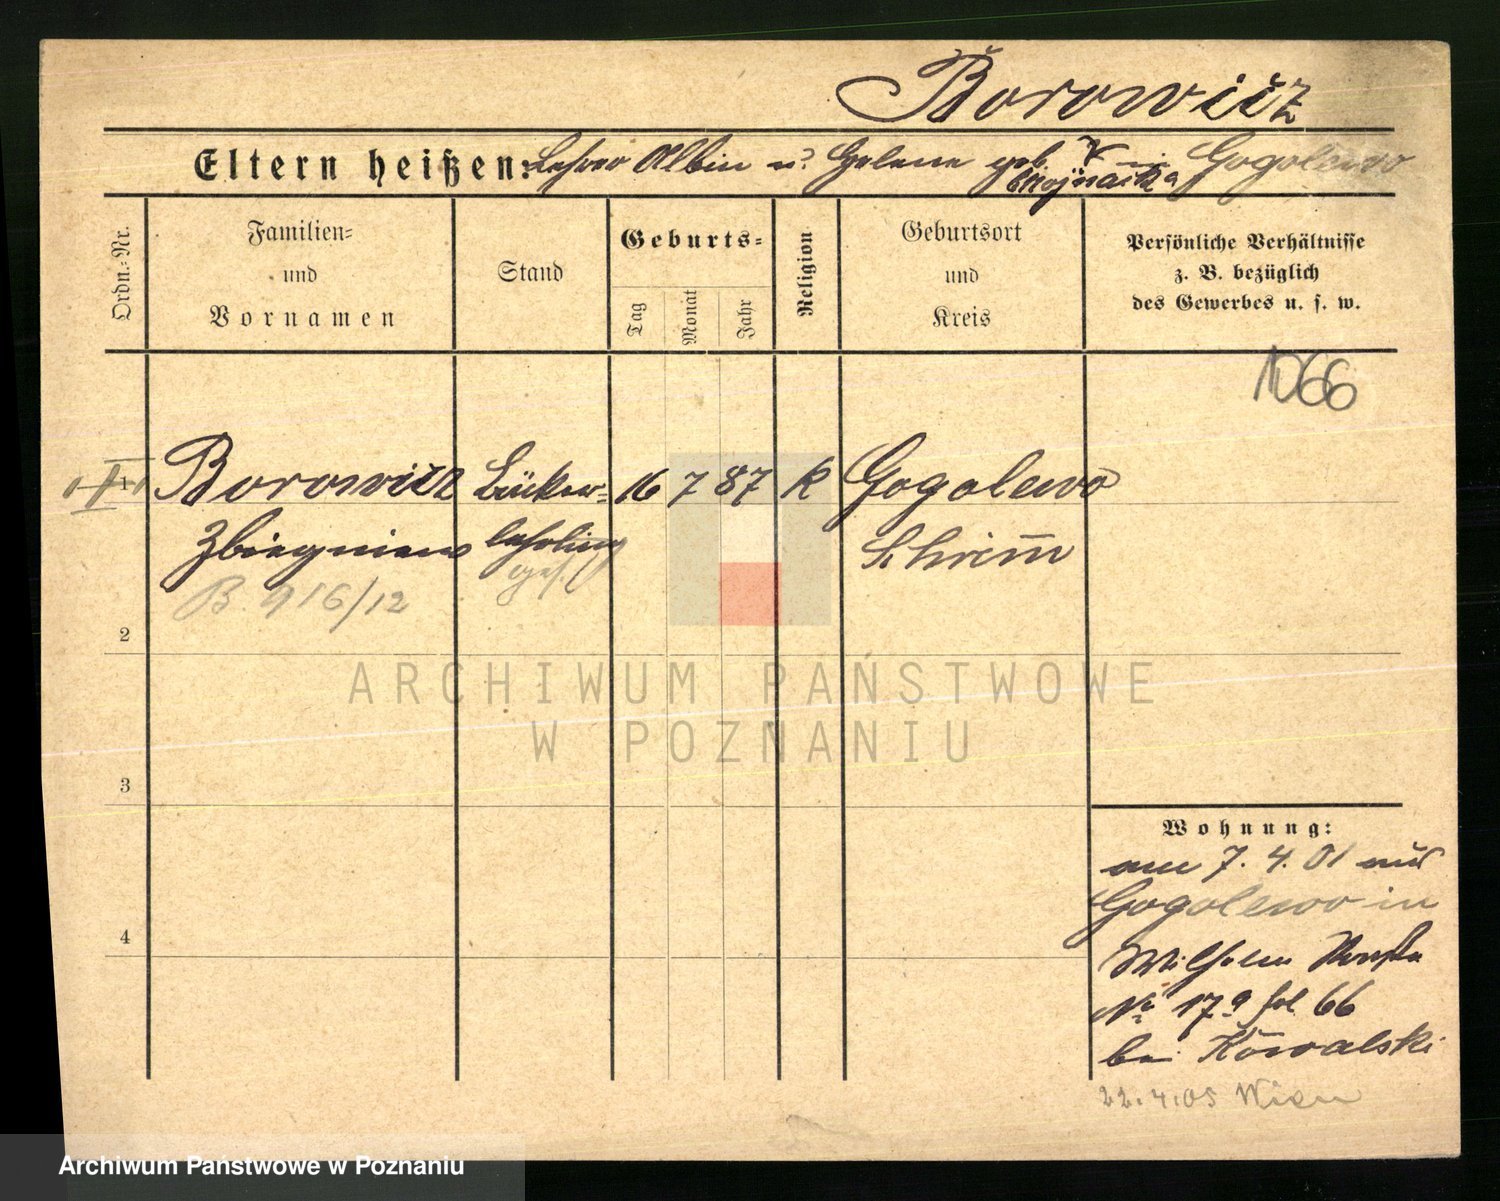 Borowicz
Eltern heißen: Lehrer Albin u. Helene geb. in Gogolewo
Wojnacka
Ordn.-Nr.
Familien-
und
Vornamen
Stand
Geburts-
Tag
Monat
Jahr
Religion
Geburtsort
und
Kreis
Persönliche Verhältnisse
z. B. bezüglich
des Gewerbes u. s. w.
1066
1 Borowicz Bäcker- 16 7 87 k Gogolewo
Zbiegniew lehrling Schrimm
B. 916/12 gef.
2
ARCHIWUM PAŃSTWOWE
W POZNANIU
3
Wohnung:
am 7. 4. 01 aus
Gogolewo in
4
Wilhelm
No 17a fol 66
bei Kowalski
22.4.05 Wien
Archiwum Państwowe w Poznaniu